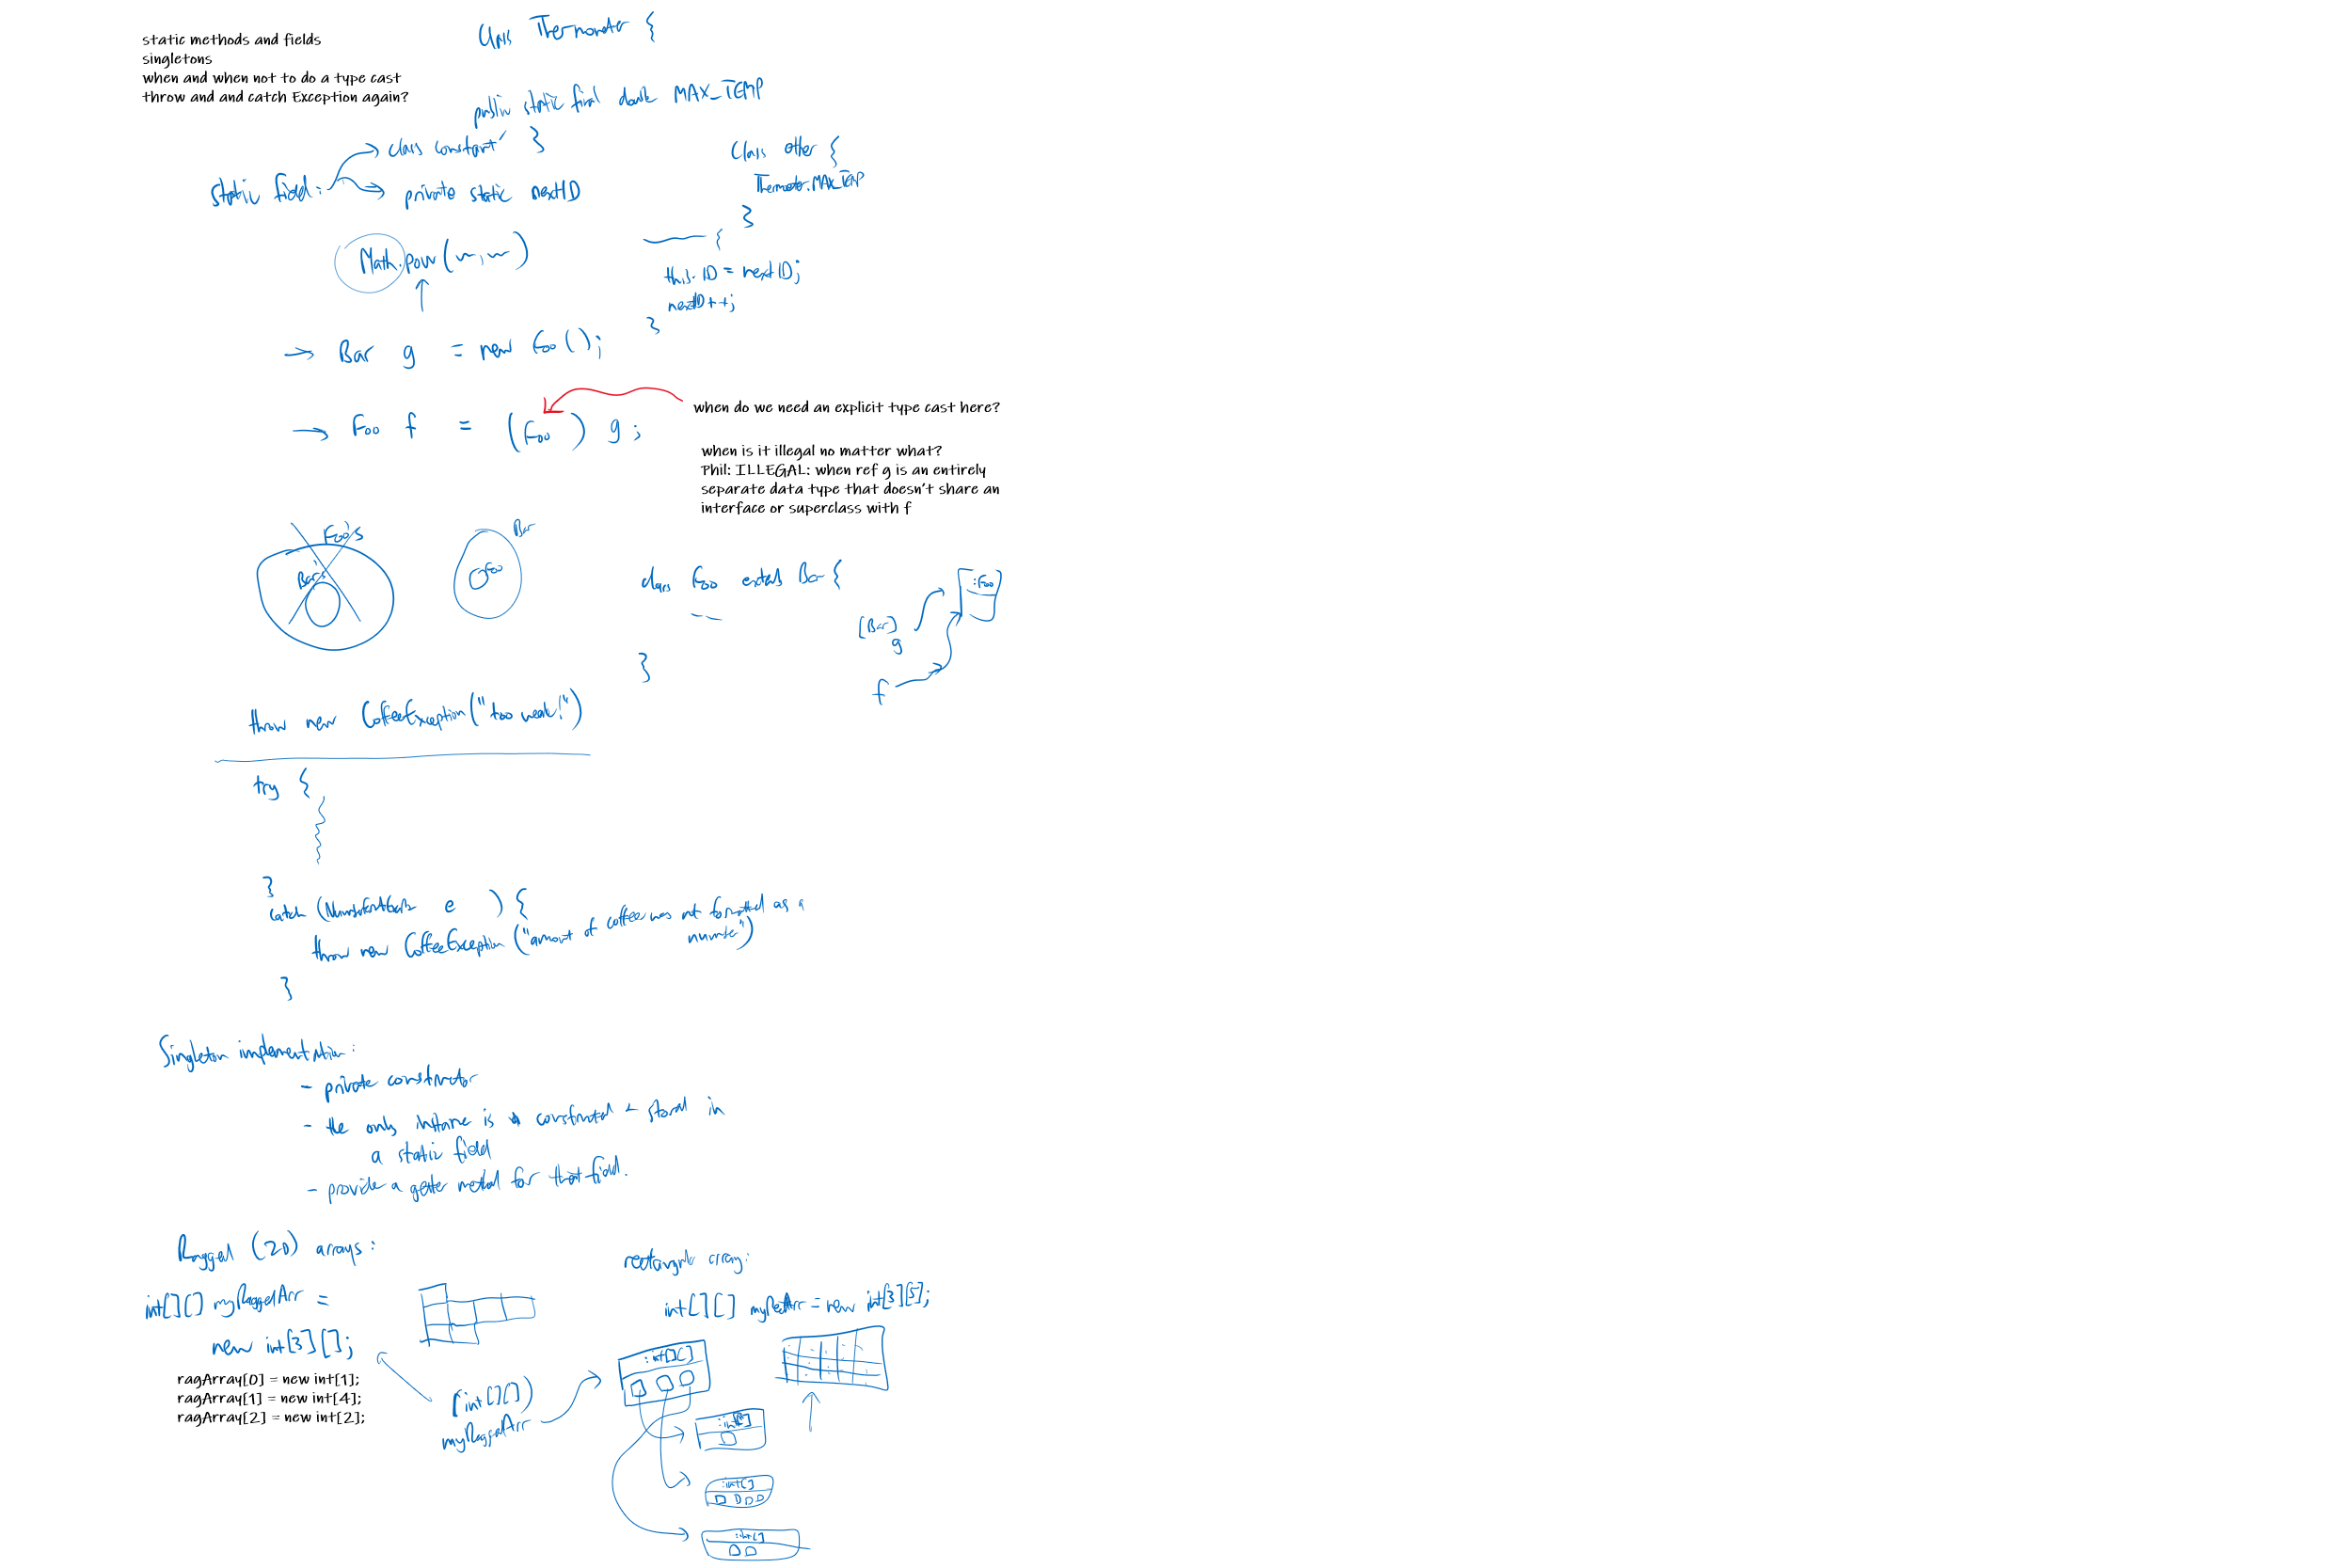 static methods and fields
singletons
when and when not to do a type cast
throw and and catch Exception again?
Class Thermometer {
public static final double MAX_TEMP
}
class constant
static field:
private static nextID
Class Other {
Thermometer.MAX_TEMP
}
Math.pow( , )
{
this.ID = nextID;
nextID++;
}
→ Bar g = new Foo();
→ Foo f = (Foo) g;
when do we need an explicit type cast here?
when is it illegal no matter what?
Phil: ILLEGAL: when ref g is an entirely
separate data type that doesn't share an
interface or superclass with f
Foo's
Bar's
Bar
Foo
class Foo extends Bar {
}
:Foo
[Bar]
g
f
throw new CoffeeException("too weak!")
try {
}
catch ( e ) {
throw new CoffeeException("amount of coffee was not formatted as a
number")
}
Singleton implementation:
- private constructor
- the only instance is constructed + stored in
a static field
- provide a getter method for that field.
Ragged (2D) arrays:
int[][] myRaggedArr =
new int[3][];
ragArray[0] = new int[1];
ragArray[1] = new int[4];
ragArray[2] = new int[2];
[int[][])
myRaggedArr
rectangular array:
int[][] myRectArr = new int[3][5];
:int[][]
:int[]
:int[]
:int[]